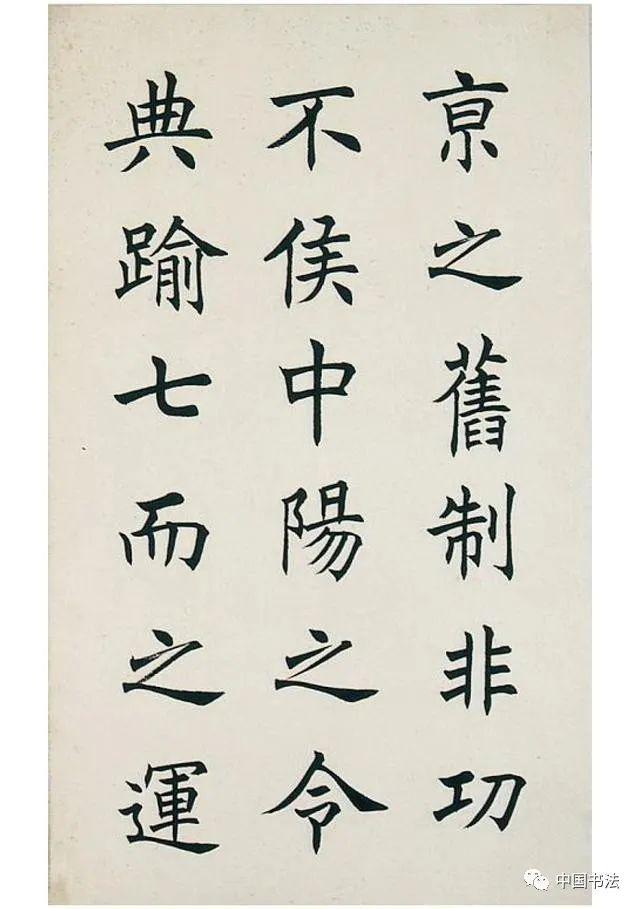 亰之舊制非功
不侯中陽之令
典踰七而之運
中国书法